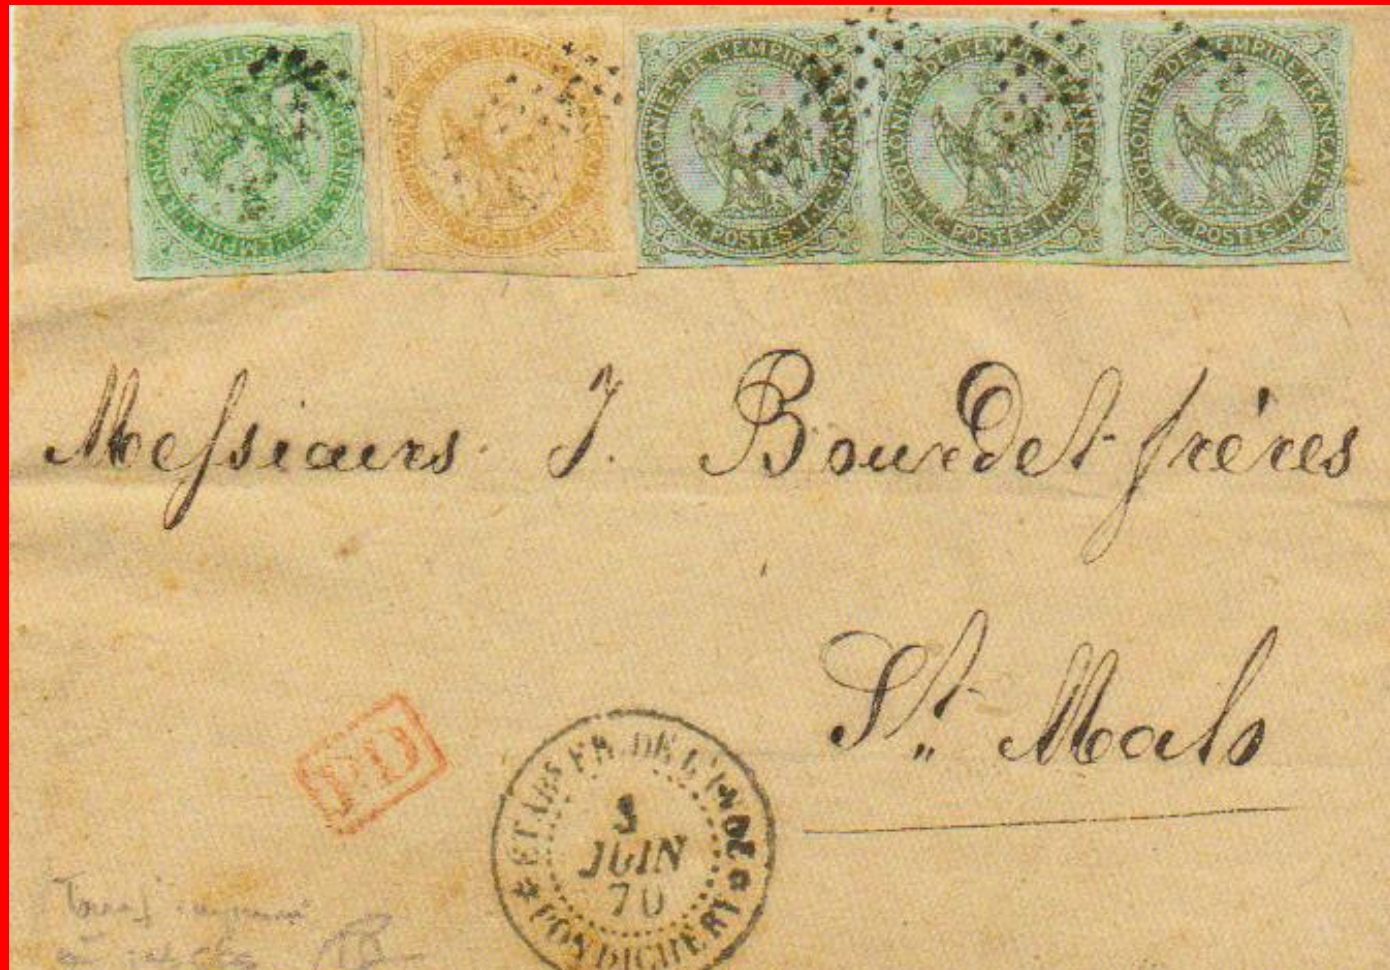 COLONIES DE L'EMPIRE FRANÇAIS POSTES
COLONIES DE L'EMPIRE FRANÇAIS POSTES
COLONIES DE L'EMPIRE FRANÇAIS 1.C. POSTES 1.C.
COLONIES DE L'EMPIRE FRANÇAIS 1.C. POSTES 1.C.
COLONIES DE L'EMPIRE FRANÇAIS 1.C. POSTES 1.C.
Messieurs J. Bourdet frères
St. Malo
P.D
ETABS FR. DE L'INDE
JUIN
70
PONDICHERY